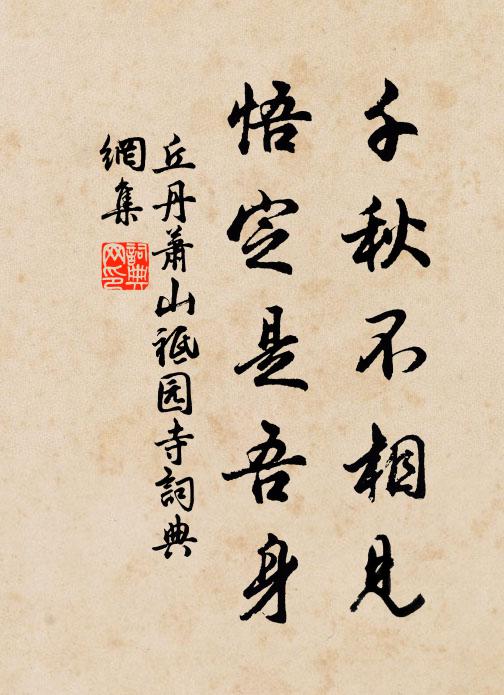 千秋不相見
悟定是吾身
丘丹蕭山祗园寺詞典
網集
詞典
网印